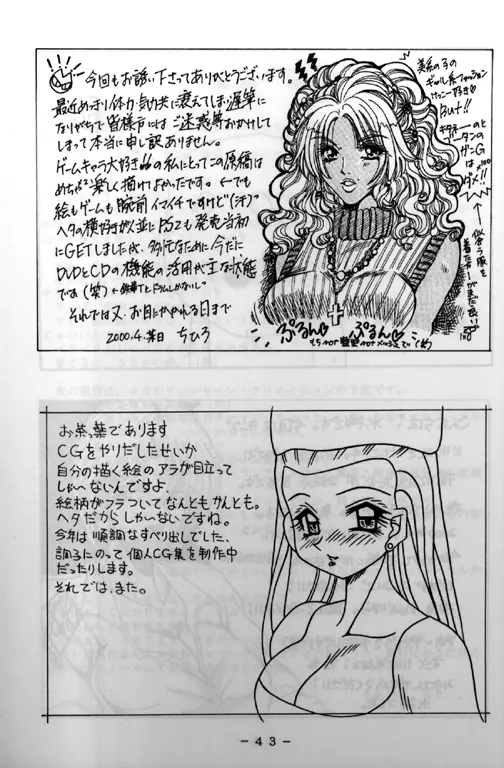 今回もお誘い下さってありがとうございます。
最近めっきり体力・気力共に衰えてしまい遅筆に
なりがちで皆様方にはご迷惑等おかけして
しまって本当に申し訳ありません。
ゲームキャラ大好きの私にとってこの原稿は
めちゃ2楽しく描けてよかったです。←でも
絵もゲームも腕前イマイチですけど"(汗)"
ヘタの横好きが並にPS2も発売当初
にGETしましたが、多忙なために今だに
DVDとCDの機能の活用が主な状態
です(笑)
それでは又、お目にかかれる日まで
2000.4.某日 ちひろ
美系の子の
ギャル系ファッション
けっこー好き
But!!
ガングロは
ダメ!!
似合う服を
着た方がまだ良い
ぷるん♡ ぷるん♡
お茶葉であります
CGをやりだしたせいか
自分の描く絵のアラが目立って
しゃーないんですよ
絵柄がフラついてなんともかんとも。
ヘタだからしゃーないですね。
今年は順調なすべり出しでした、
調子にのって個人CG集を制作中
だったりします。
それでは、また。
- 43 -